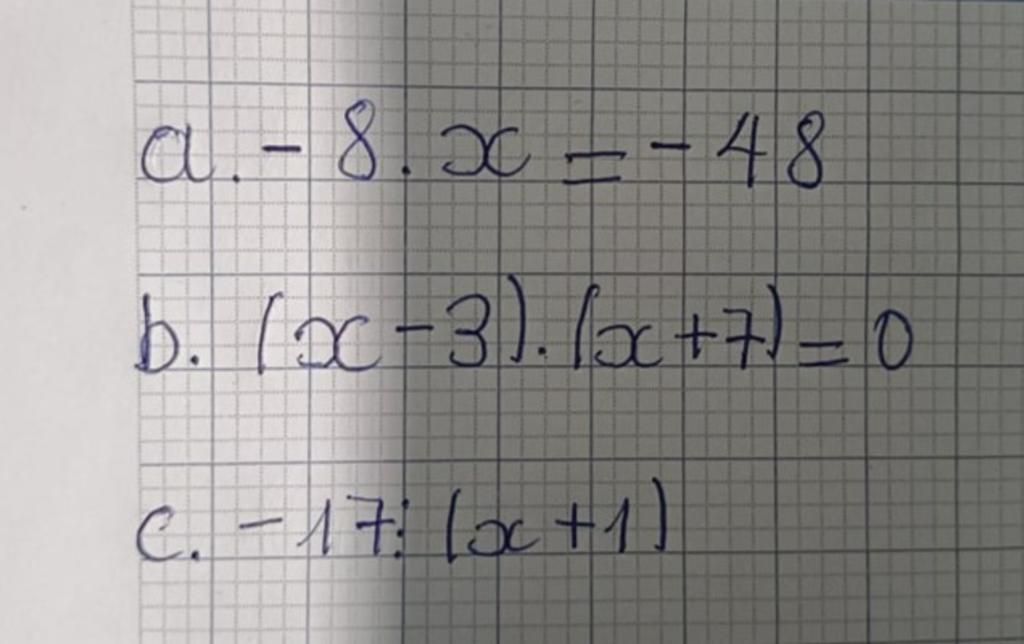 a. - 8 . x = - 48
b. (x - 3) . (x + 7) = 0
c. - 17 ⋮ (x + 1)